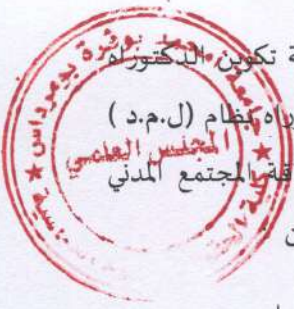 ة تكوين الدكتوراه
راه بنظام (ل.م.د )
قة المجتمع المدني
ن
جامعة محمد بوقرة بومرداس
المجلس العلمي
كلية